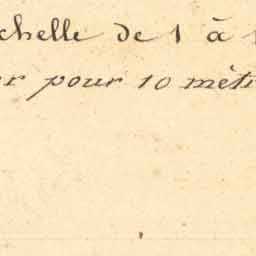 chelle de 1 à 1
er pour 10 mèt